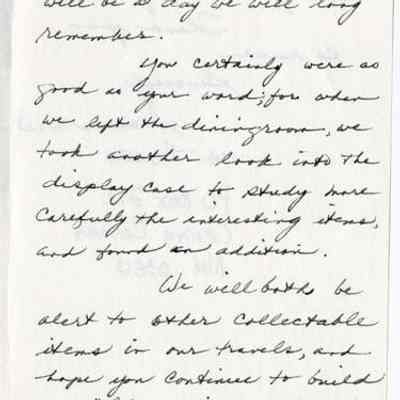 will be a day we will long
remember.
You certainly were as
good as your word; for when
we left the diningroom, we
took another look into the
display case to study more
carefully the interesting items,
and found an addition.
We will both be
alert to other collectable
items in our travels, and
hope you continue to build